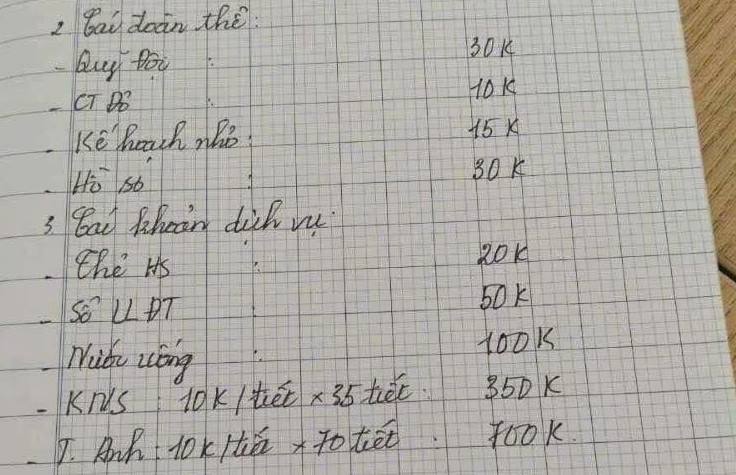 2 Các đoàn thể:
- Quỹ Đội : 30K
- CT Đỏ : 10K
- Kế hoạch nhỏ : 15K
- Hồ sơ : 30K
3 Các khoản dịch vụ:
- Thẻ HS : 20K
- Sổ LLĐT : 50K
- Nước uống : 100K
- KNS : 10K/tiết × 35 tiết. 350K
- T. Anh : 10K/tiết × 70 tiết . 700K.